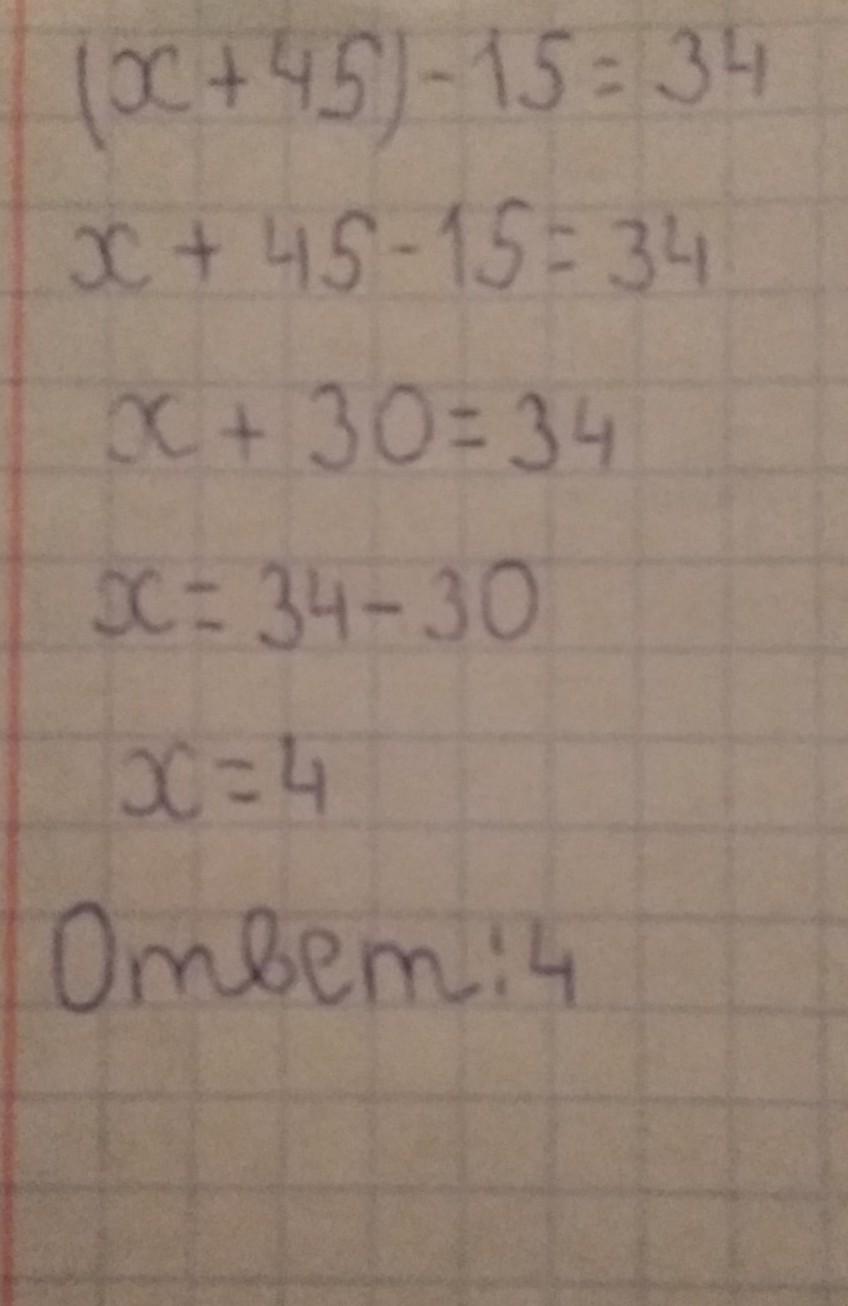 (x+45)-15=34
x+45-15=34
x+30=34
x=34-30
x=4
Ответ:4